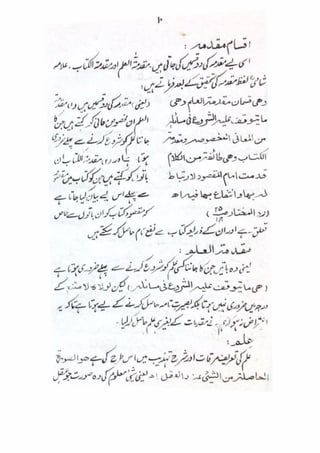 ۱۰
اقسام مقدمہ :
اسی لیے مقدمہ کی دو قسمیں کی جاتی ہیں، مقدمۃ العلم اور مقدمۃ الکتاب۔ علامہ
شامیؒ لفظ مقدمہ کی تحقیق کے بعد فرماتے ہیں :
وھی قسمان مقدمۃ العلم وھی
ما یتوقف علیہ الشروع فی مسائلہ
من المعانی المخصوصۃ ومقدمۃ
الکتاب وھی طائفۃ من الکلام
قدمت امام المقصود لارتباط
لہ بھا وانتفاع بھا فیہ اھ
(رد المحتار
(یعنی) مقدمہ کی دو قسمیں ہیں (۱) مقدمۃ
العلم ان مخصوص معانی کو کہتے ہیں جن کا
جاننا علم کو شروع کرنے سے پہلے ضروری
ہوتا ہے اور (۲) مقدمۃ الکتاب ان
باتوں کو کہتے ہیں جن کو کتاب میں
سے پہلے اس لیے بیان کیا جاتا ہے
کہ مقصود کتاب کو ان باتوں سے خاص
تعلق ہے اور ان کے ذریعہ کتاب سے نفع تام حاصل کر سکتے ہیں
مقدمۃ العلم :
یعنی وہ باتیں جن کا جاننا کسی علم کو شروع کرنے سے پہلے ضروری ہوتا ہے
(ھی ما یتوقف علیہ الشروع فی مسائلہ) لیکن لولاہ لامتنع کے
درجہ میں ضروری نہیں ہوتا بلکہ بصیرت تامہ حاصل کرنے کے لیے ہوتا ہے تاکہ یہ
اعتراض نہ ہو نے مقدمات کے بغیر ہی علم حاصل کر لیا۔
علم :
علم کی تعریف مرقات اور شرح تہذیب میں اس طرح کی ہے ھو الصورۃ
الحاصلۃ من الشیٔ عند العقل اھ یعنی شیٔ معلوم کی وہ صورت جو عقل